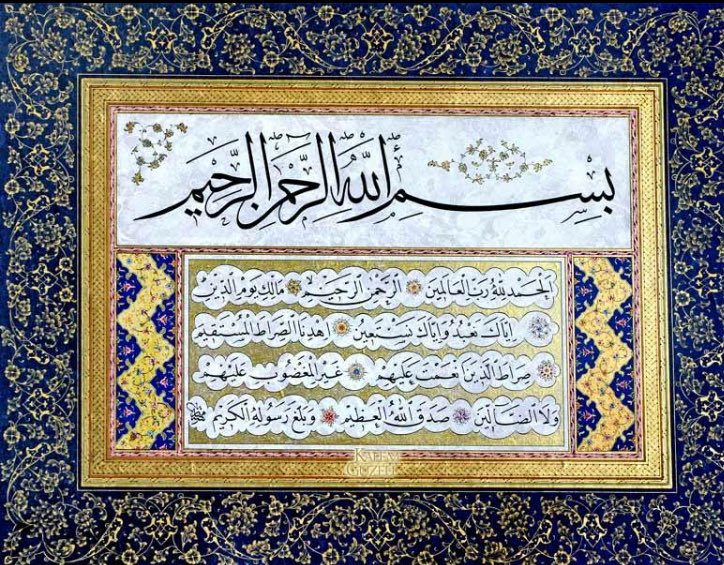 بِسْمِ اللّٰهِ الرَّحْمٰنِ الرَّحِيمِ
اَلْحَمْدُ لِلّٰهِ رَبِّ الْعَالَمِينَ الرَّحْمٰنِ الرَّحِيمِ مَالِكِ يَوْمِ الدِّينِ
اِيَّاكَ نَعْبُدُ وَاِيَّاكَ نَسْتَعِينُ اِهْدِنَا الصِّرَاطَ الْمُسْتَقِيمَ
صِرَاطَ الَّذِينَ اَنْعَمْتَ عَلَيْهِمْ غَيْرِ الْمَغْضُوبِ عَلَيْهِمْ
وَلَا الضَّالِّينَ صَدَقَ اللّٰهُ الْعَظِيمُ وَبَلَّغَ رَسُولُهُ الْكَرِيمُ
KALEM
GÜZELİ